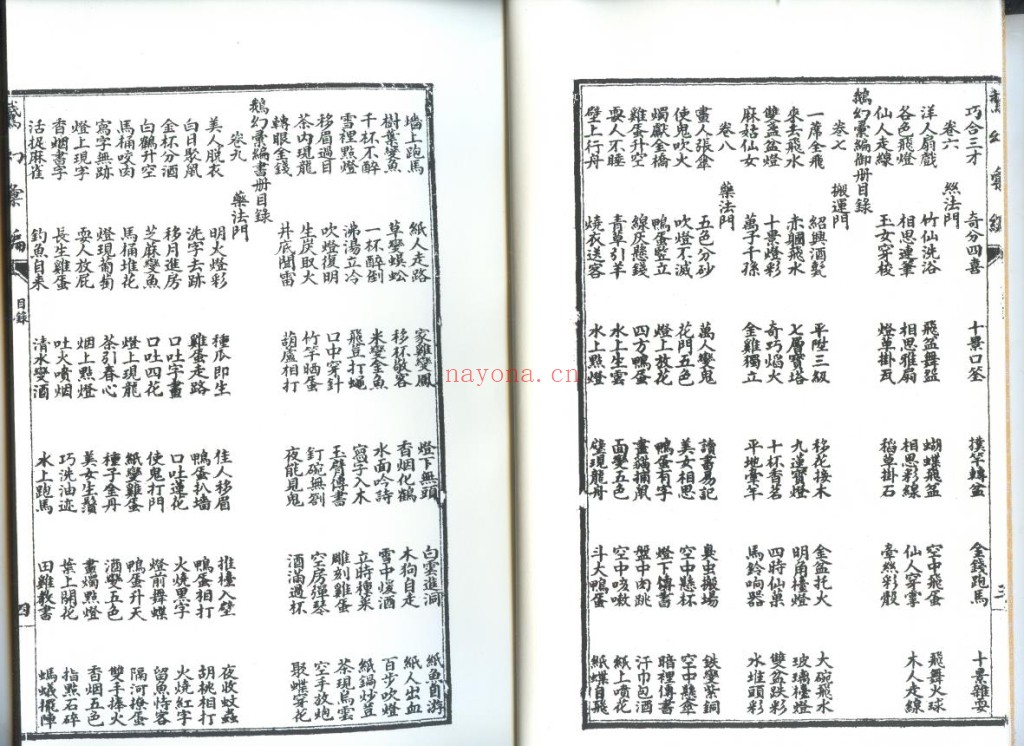 巧合三才 奇分四喜 十景口筌 金錢跑馬 十景雜耍
卷六 絲法門
洋人扇戲 竹仙洗浴 飛盆舞盆 蝴蝶飛盆 空中飛蛋 飛舞火球
各色飛燈 相思連筆 相思雅扇 相思彩線 仙人穿掌 木人走線
仙人走線 玉女穿梭 燈草掛瓦 稻草掛石 牽絲彩骰
鵝幻彙編御册目錄
卷七 搬運門
一席全飛 紹興酒甏 平陞三級 移花接木 金盆托火 大碗飛水
來去飛水 飛水 七層寶塔 九蓮寶燈 明角檯燈 玻璃檯燈
雙盞盆燈 十景燈彩 奇巧焰火 十杯香茗 四時仙菓 雙盆跌彩
麻姑仙女 萬子千孫 金雞獨立 平地 馬鈴响器 水堆頭彩
卷八 藥法門
畫人張傘 五色分砂 萬人變鬼 讀書易記 臭虫搬場 鉄變紫銅
使鬼吹火 吹燈不滅 花門五色 美女相思 空中懸杯 空中懸傘
燭獻金橋 鴨蛋豎立 燈上放花 鴨蛋有字 燈下傳書 暗裡傳書
雞蛋升空 線灰懸錢 四方鴨蛋 畫貓捕鼠 盤中肉跳 汗巾包酒
耍人不睡 青草引羊 水上生雲 面變五色 空中咳嗽 紙上噴花
壁上行舟 燒衣送客 水上點燈 壁現龍舟 斗大鴨蛋 紙蝶自飛
三
墻上跑馬 紙人走路 家雞變鳳 燈下無頭 白雲進洞 紙魚自游
樹葉變魚 草變蜈蚣 移杯敬客 香烟化鶴 木狗自走 紙人出血
千杯不醉 一杯醉倒 米變金魚 水面吟詩 雪中煖酒 百步吹燈
雪裡點燈 沸湯立冷 飛荳打蠅 寫字入木 立時種菜 紙鍋炒荳
移眉過目 吹燈復明 口中穿針 玉臂傳書 雕刻雞蛋 茶現烏雲
茶內現龍 生炭取火 竹竿晒蛋 釘碗無劄 空房彈琴 空手放炮
轉眼金錢 井底聞雷 葫蘆相打 夜能見鬼 酒滿過杯 聚蝶穿花
鵝幻彙編書册目錄
卷九 藥法門
美人脫衣 明火燈彩 種瓜即生 佳人移眉 推檯入壁 夜收蚊蟲
白日聚氣 洗字去跡 雞蛋走路 鴨蛋扒墻 鴨蛋相打 胡桃相打
金杯分酒 移月進房 口吐字畫 口吐蓮花 火燒黑字 火燒紅字
白鶴升空 芝麻變魚 口吐四花 使鬼打門 燈前舞蝶 留魚待客
馬桶咬肉 馬桶堆花 燈上現龍 紙變雞蛋 鴨蛋升天 隔河換蛋
寫字無跡 燈現葡萄 茶引春心 種子金丹 酒變五色 雙手捧火
燈上現字 耍人放屁 烟上點燈 美女生鬚 畫燭點燈 香烟五色
香烟書字 長生雞蛋 吐火噴烟 巧洗油迹 葉上開花 指點石碎
沽捉麻雀 釣魚自来 清水變酒 水上跑馬 田雞教書 螞蟻擺陣
鵝幻彙編 目錄 四
nayona.cn